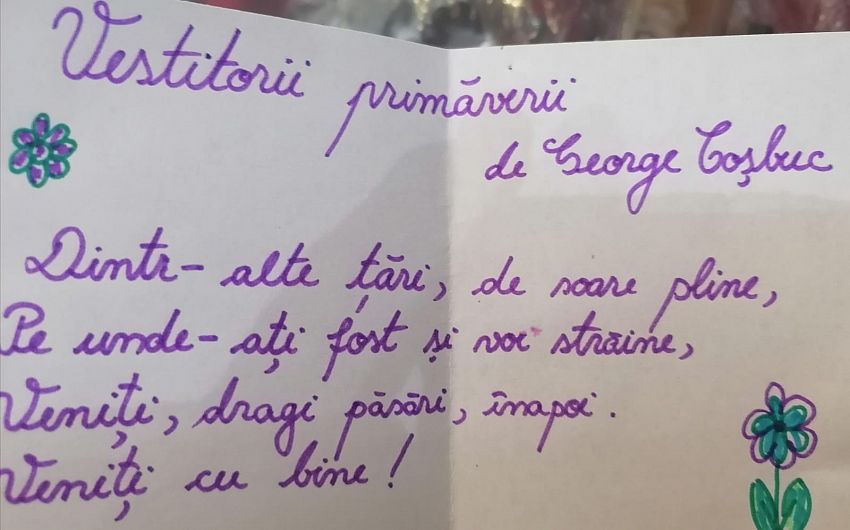 Vestitorii primăverii
de George Coșbuc
Dintr-alte țări, de soare pline,
Pe unde-ați fost și voi străine,
Veniți, dragi păsări, înapoi.
Veniți cu bine!